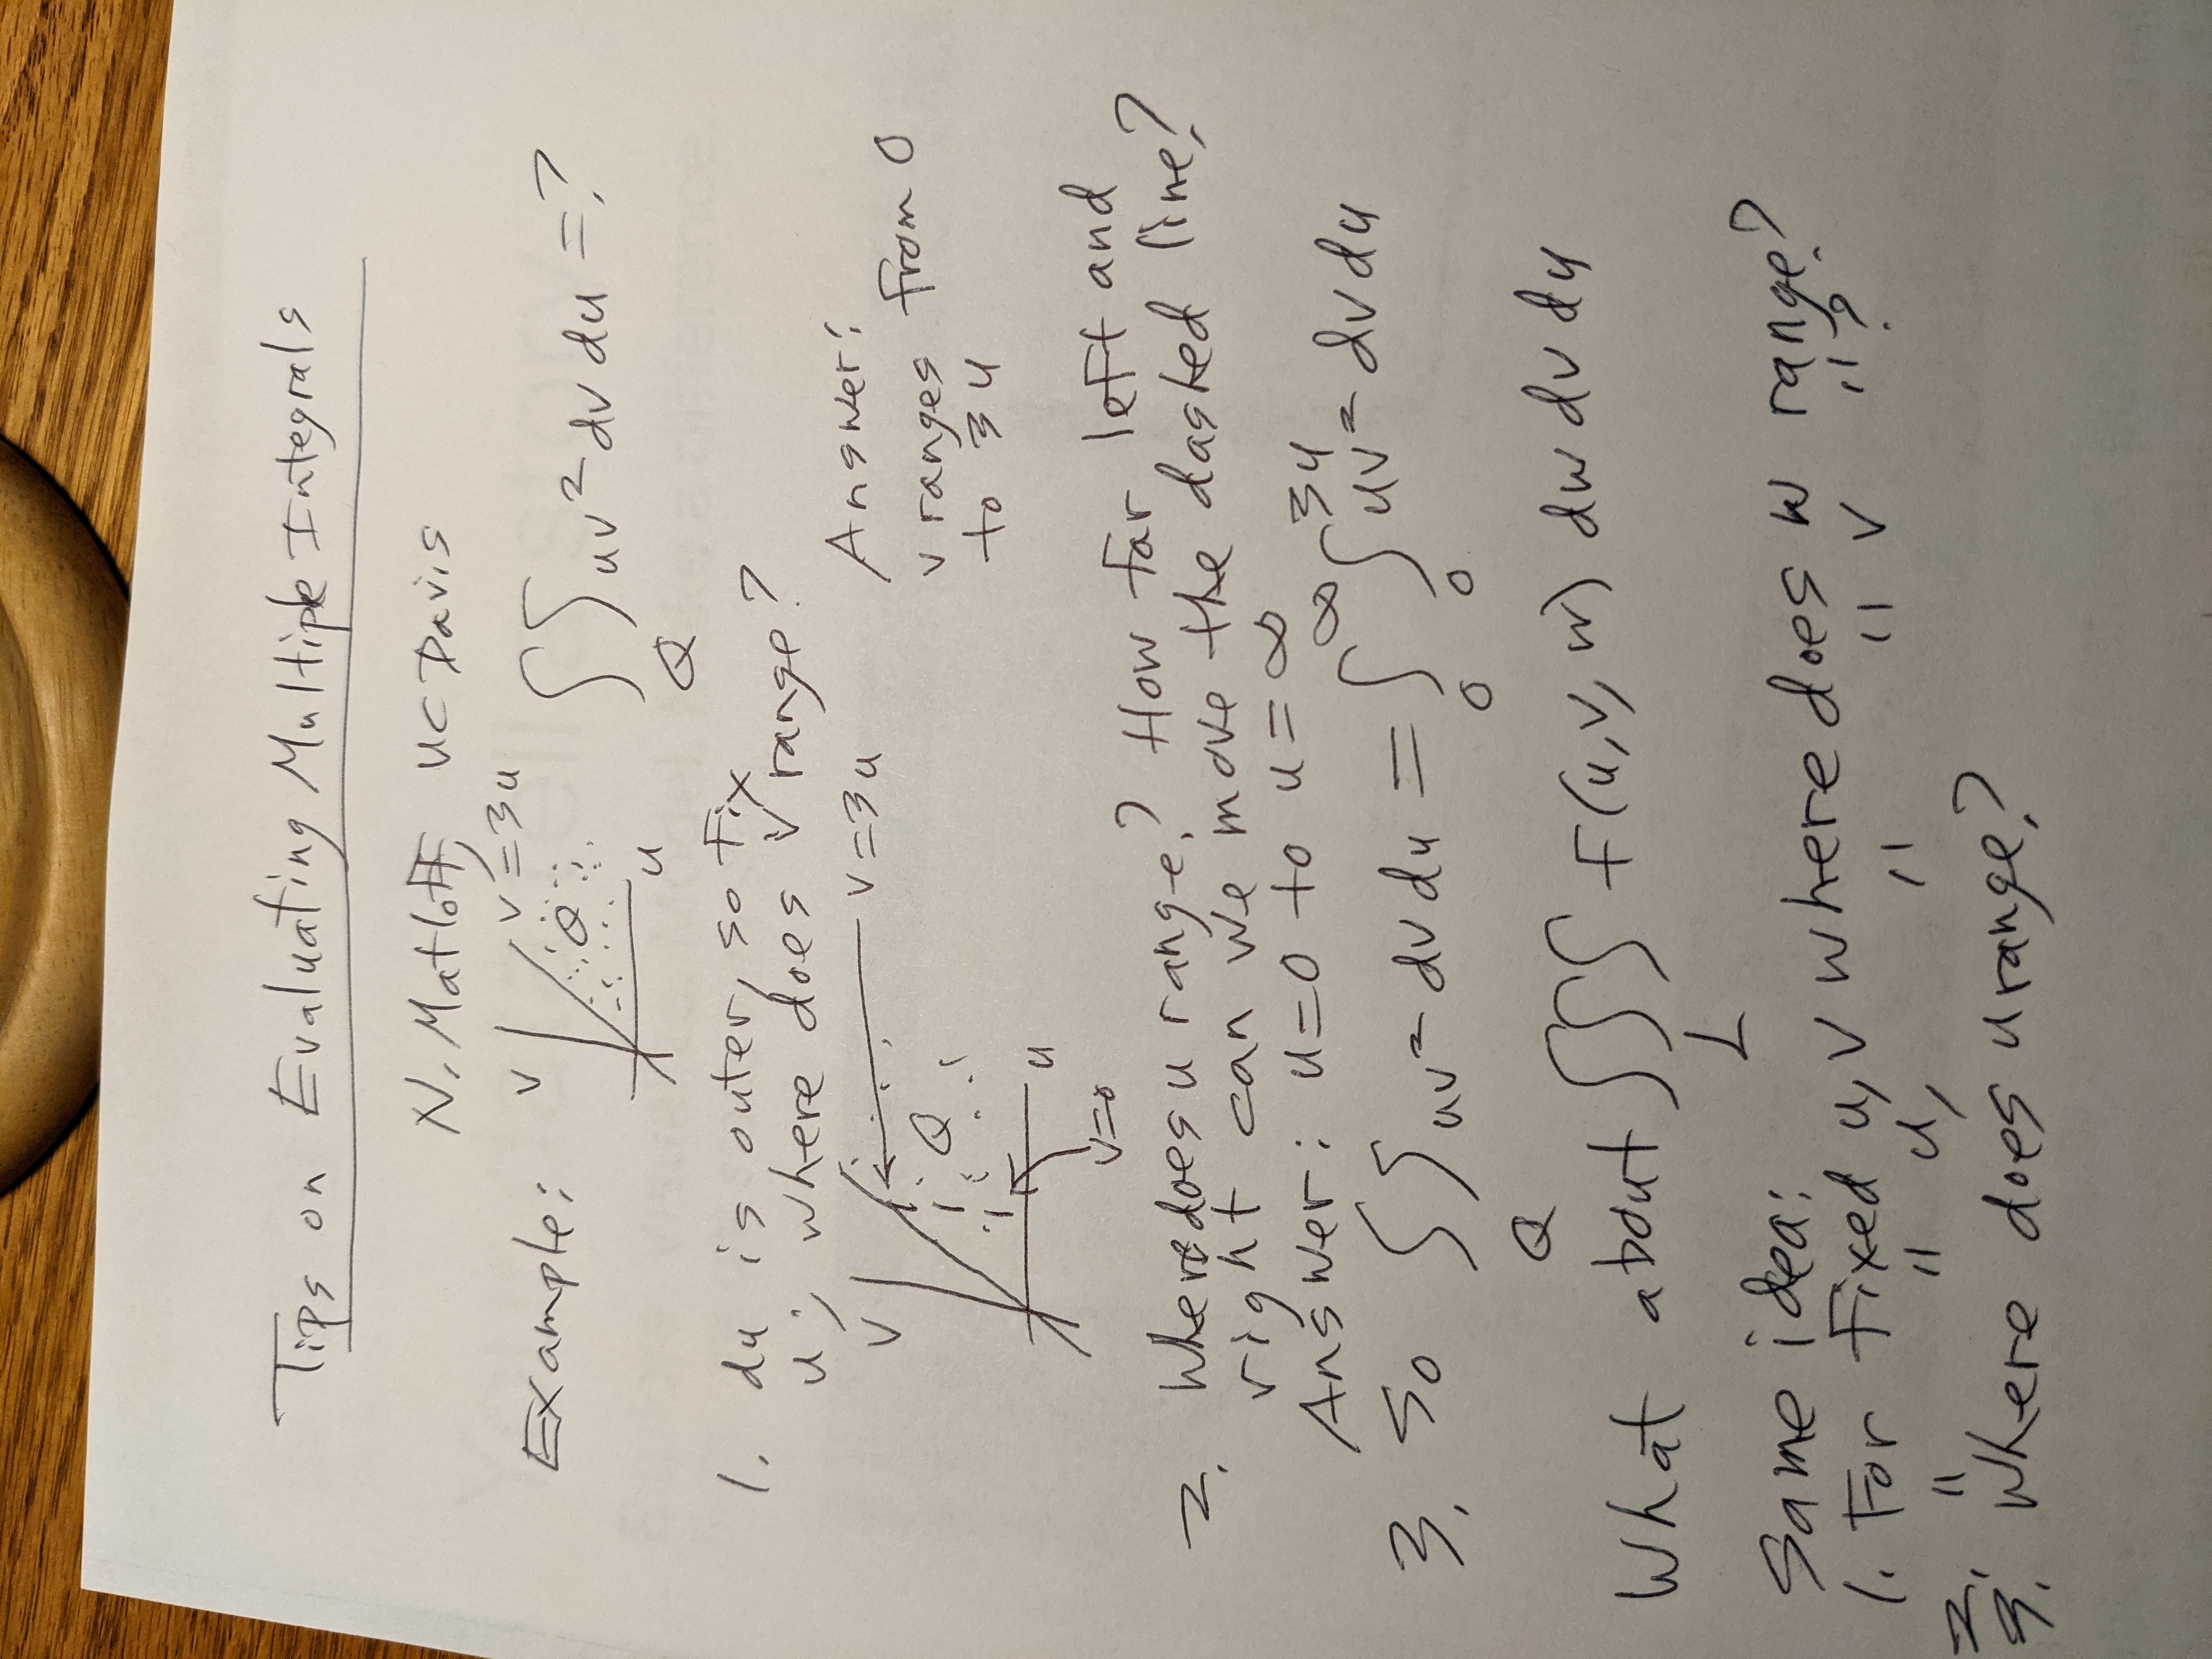 Tips on Evaluating Multiple Integrals
N. Matloff, UC Davis
Example: v v=3u Q u ∫∫ uv² dv du = ?
Q
1. du is outer, so fix
u; where does v range?
v v=3u Answer:
Q v ranges from 0
u to 3u
v=0
2. Where does u range? How far left and
right can we move the dashed line?
Answer: u=0 to u=∞
3. So ∫∫ uv² dv du = ∫₀^∞ ∫₀^3u uv² dv du
Q
What about ∫∫∫ f(u,v,w) dw dv du
L
Same idea:
1. For fixed u,v where does w range?
2. " " u, " " v " "?
3. Where does u range?